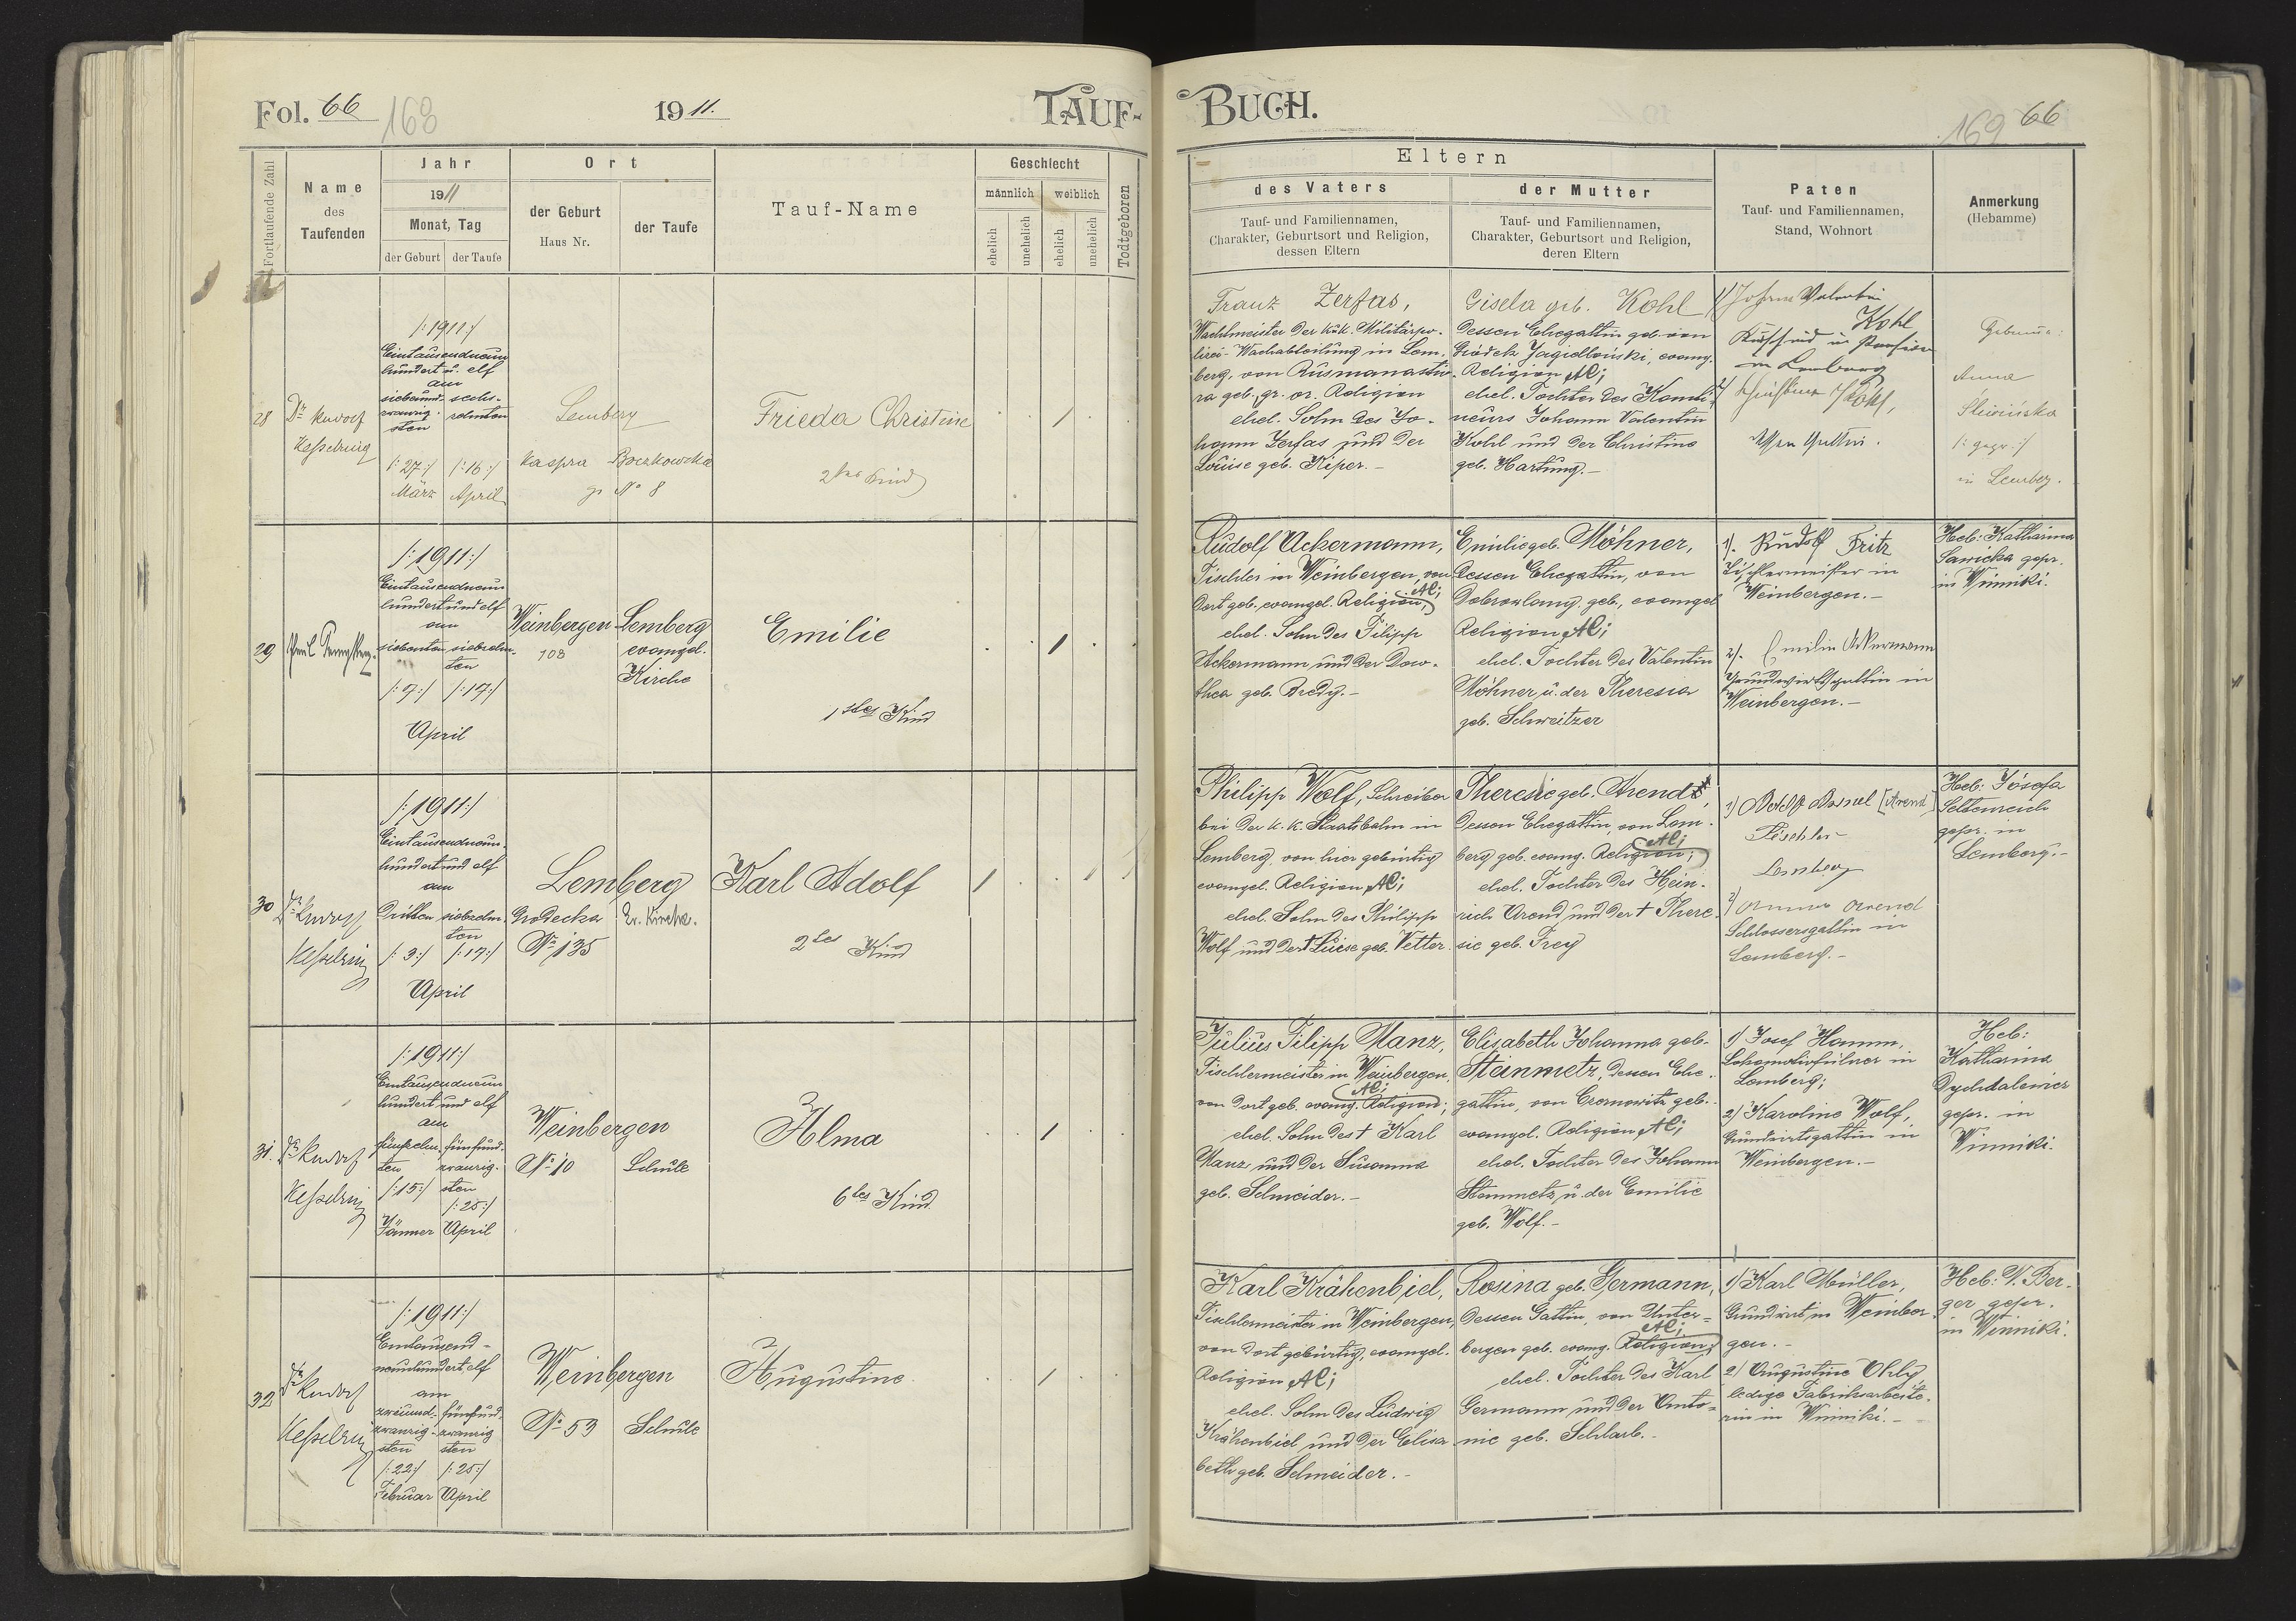 Fol. 66
168
1911.
TAUF-
Fortlaufende Zahl
Name
des
Taufenden
Jahr
1911
Monat, Tag
der Geburt
der Taufe
Ort
der Geburt
Haus Nr.
der Taufe
Tauf-Name
Geschlecht
männlich
weiblich
ehelich
unehelich
ehelich
unehelich
Todtgeboren
28
Dr Rudolf
Kesselring
/:1911:/
Eintausendneun
hundert u. elf
am
siebenund- sechs-
zwanzig- zehnten
sten
/:27:/ /:16:/
März April
Lemberg
Kaspra Boczkowska
No 8
Frieda Christine
2tes Kind
29
/:1911:/
Eintausendneun
hundert und elf
am
siebenten siebzehn-
ten
/:7:/ /:17:/
April
Weinbergen
108
Lemberg
evangel.
Kirche
Emilie
1stes Kind
30
Dr Rudolf
Kesselring
/:1911:/
Eintausendneun-
hundert und elf
am
dritten siebzehn-
ten
/:3:/ /:17:/
April
Lemberg
Grodecka
No 135
Ev. Kirche.
Karl Adolf
2tes Kind
31.
Dr Rudolf
Kesselring
/:1911:/
Eintausendneun
hundert und elf
am
fünfzehn- fünfund-
ten zwanzig-
/:15:/ sten
/:25:/
Jänner April
Weinbergen
No 10
Schule
Alma
6tes Kind
32
Dr Rudolf
Kesselring
/:1911:/
Eintausend-
neunhundert elf
am
zweiund- fünfund-
zwanzig- zwanzig
sten sten
/:22:/ /:25:/
Februar April
Weinbergen
No 53
Schule
Augustine
BUCH.
169
66
Eltern
des Vaters
Tauf- und Familiennamen,
Charakter, Geburtsort und Religion,
dessen Eltern
der Mutter
Tauf- und Familiennamen,
Charakter, Geburtsort und Religion,
deren Eltern
Paten
Tauf- und Familiennamen,
Stand, Wohnort
Anmerkung
(Hebamme)
Franz Zerfas,
Wachtmeister der k.u.k. Militärpo-
lizei-Wachabteilung in Lem-
berg, von Rusmanastio-
ra geb., gr. or. Religion
ehel. Sohn des Jo-
hann Zerfas und der
Louise geb. Kiper.-
Gisela geb. Kohl
dessen Ehegattin geb. von
Gródek Jagielloński, evang.
Religion AC;
ehel. Tochter des Kondi-
Johann Valentin
Kohl und der Christine
geb. Hartung.-
1) Johann Valentin
Kohl
in Pension
in Lemberg
2) Christine Kohl,
dessen Gattin.
Anna
Śliwińska
/: gepr. :/
in Lemberg.
Rudolf Ackermann,
Tischler in Weinbergen, von
dort geb. evangel. Religion AC;
ehel. Sohn des Filipp
Ackermann und der Doro-
thea geb. Bredy.-
Emilie geb. Möhner,
dessen Ehegattin, von
geb., evangel
Religion AC;
ehel. Tochter des Valentin
Möhner u. der Theresia
geb. Schweitzer
1). Rudolf Fritz
Tischlermeister in
Weinbergen.-
2). Emilie Ackermann
Grundwirtsgattin in
Weinbergen.-
Heb: Katharina
Sawicka gepr.
in Winniki.
Philipp Wolf, Schreiber
bei der k. k. Staatsbahn in
Lemberg, von hier gebürtig
evangel. Religion AC;
ehel. Sohn des Philipp
Wolf und der † Luise geb. Vetter.
Theresie geb. Arendt,
dessen Ehegattin, von Lem-
berg geb. evang. Religion AC;
ehel. Tochter des Hein-
rich Arend und der † There-
sie geb. Frey
1) Adolf [Arend]
Tischler
Lemberg
2) Anna Arend
Schlossersgattin in
Lemberg.-
Heb: Józefa
Seltenreich
gepr. in
Lemberg.-
Julius Filipp Manz,
Tischlermeister in Weinbergen,
von dort geb. evang. Religion AC;
ehel. Sohn des † Karl
Manz und der Susanna
geb. Schneider.-
Elisabeth Johanna geb.
Steinmetz, dessen Ehe-
gattin, von Czernowitz geb.
evangel. Religion AC;
ehel. Tochter des Johann
Steinmetz u. der Emilie
geb. Wolf.-
1) Josef Hamm,
Lokomotivführer in
Lemberg;
2) Karoline Wolf,
Grundwirtsgattin in
Weinbergen.-
Heb:
Katharina
gepr. in
Winniki.
Karl Krähenbiel,
Tischlermeister in Weinbergen,
von dort gebürtig, evangel.
Religion AC;
ehel. Sohn des Ludwig
Krähenbiel und der Elisa-
beth geb. Schneider.-
Rosina geb. Germann,
dessen Gattin, von Unter-
bergen geb. evang. Religion AC;
ehel. Tochter des Karl
Germann und der Anto-
nie geb. Schlarb.-
1) Karl Müller,
Grundwirt in Weinber-
gen.-
2) Augustine Ohly,
ledige Fabriksarbeite-
rin in Winniki.-
Heb: V. Ber-
ger gepr.
in Winniki.